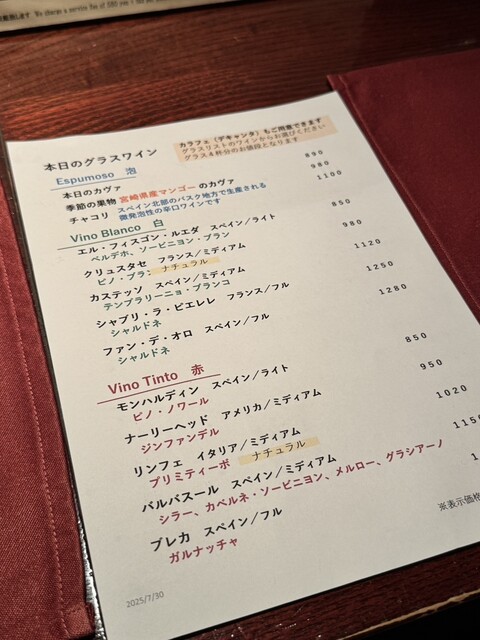 We charge a service fee of
本日のグラスワイン
カラフェ（デキャンタ）もご用意できます
グラスワリストのワインからお選びください
グラス4杯分のお値段となります
Espumoso 泡
本日のカヴァ 890
季節の果物 宮崎県産マンゴー のカヴァ 980
チャコリ スペイン北部のバスク地方で生産される 1100
微発泡性の辛口ワインです
Vino Blanco 白
エル・フィスゴン・ルエダ スペイン/ライト 850
ベルデホ、ソービニヨン・ブラン
クリュスタセ フランス/ミディアム 980
ピノ・ブラン ナチュラル
カステッソ スペイン/ミディアム 1120
テンプラリーニョ・ブランコ
シャブリ・ラ・ピエレレ フランス/フル 1250
シャルドネ
ファン・デ・オロ スペイン/フル 1280
シャルドネ
Vino Tinto 赤
モンハルディン スペイン/ライト 850
ピノ・ノワール
ナーリーヘッド アメリカ/ミディアム 950
ジンファンデル
リンフェ イタリア/ミディアム 1020
プリミティーボ ナチュラル
バルバスール スペイン/ミディアム 115
シラー、カベルネ・ソービニヨン、メルロー、グラシアーノ
ブレカ スペイン/フル
ガルナッチャ
※表示価格
2025/7/30